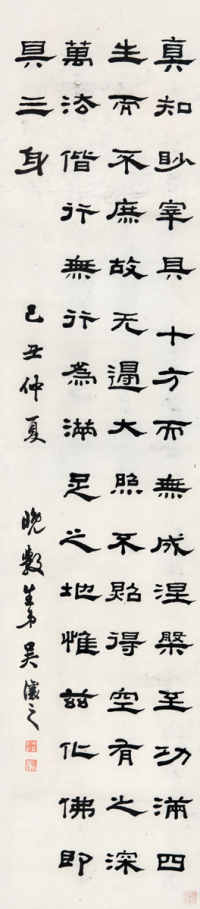 真如眇宰具十方而無成涅槃至功滿四
生而不度故无邊大照不照得空有之深
萬法偕行無行為滿足之地惟茲化佛即
具三身
己丑仲夏 晚斆生弟吳瀼之